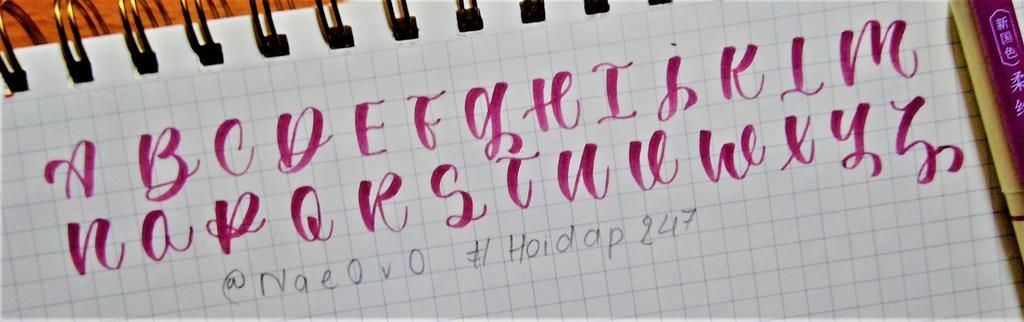 A B C D E F G H I J K L M
N O P Q R S T U V W X Y Z
@NaeOvO # Hoidap 247
新国色 柔